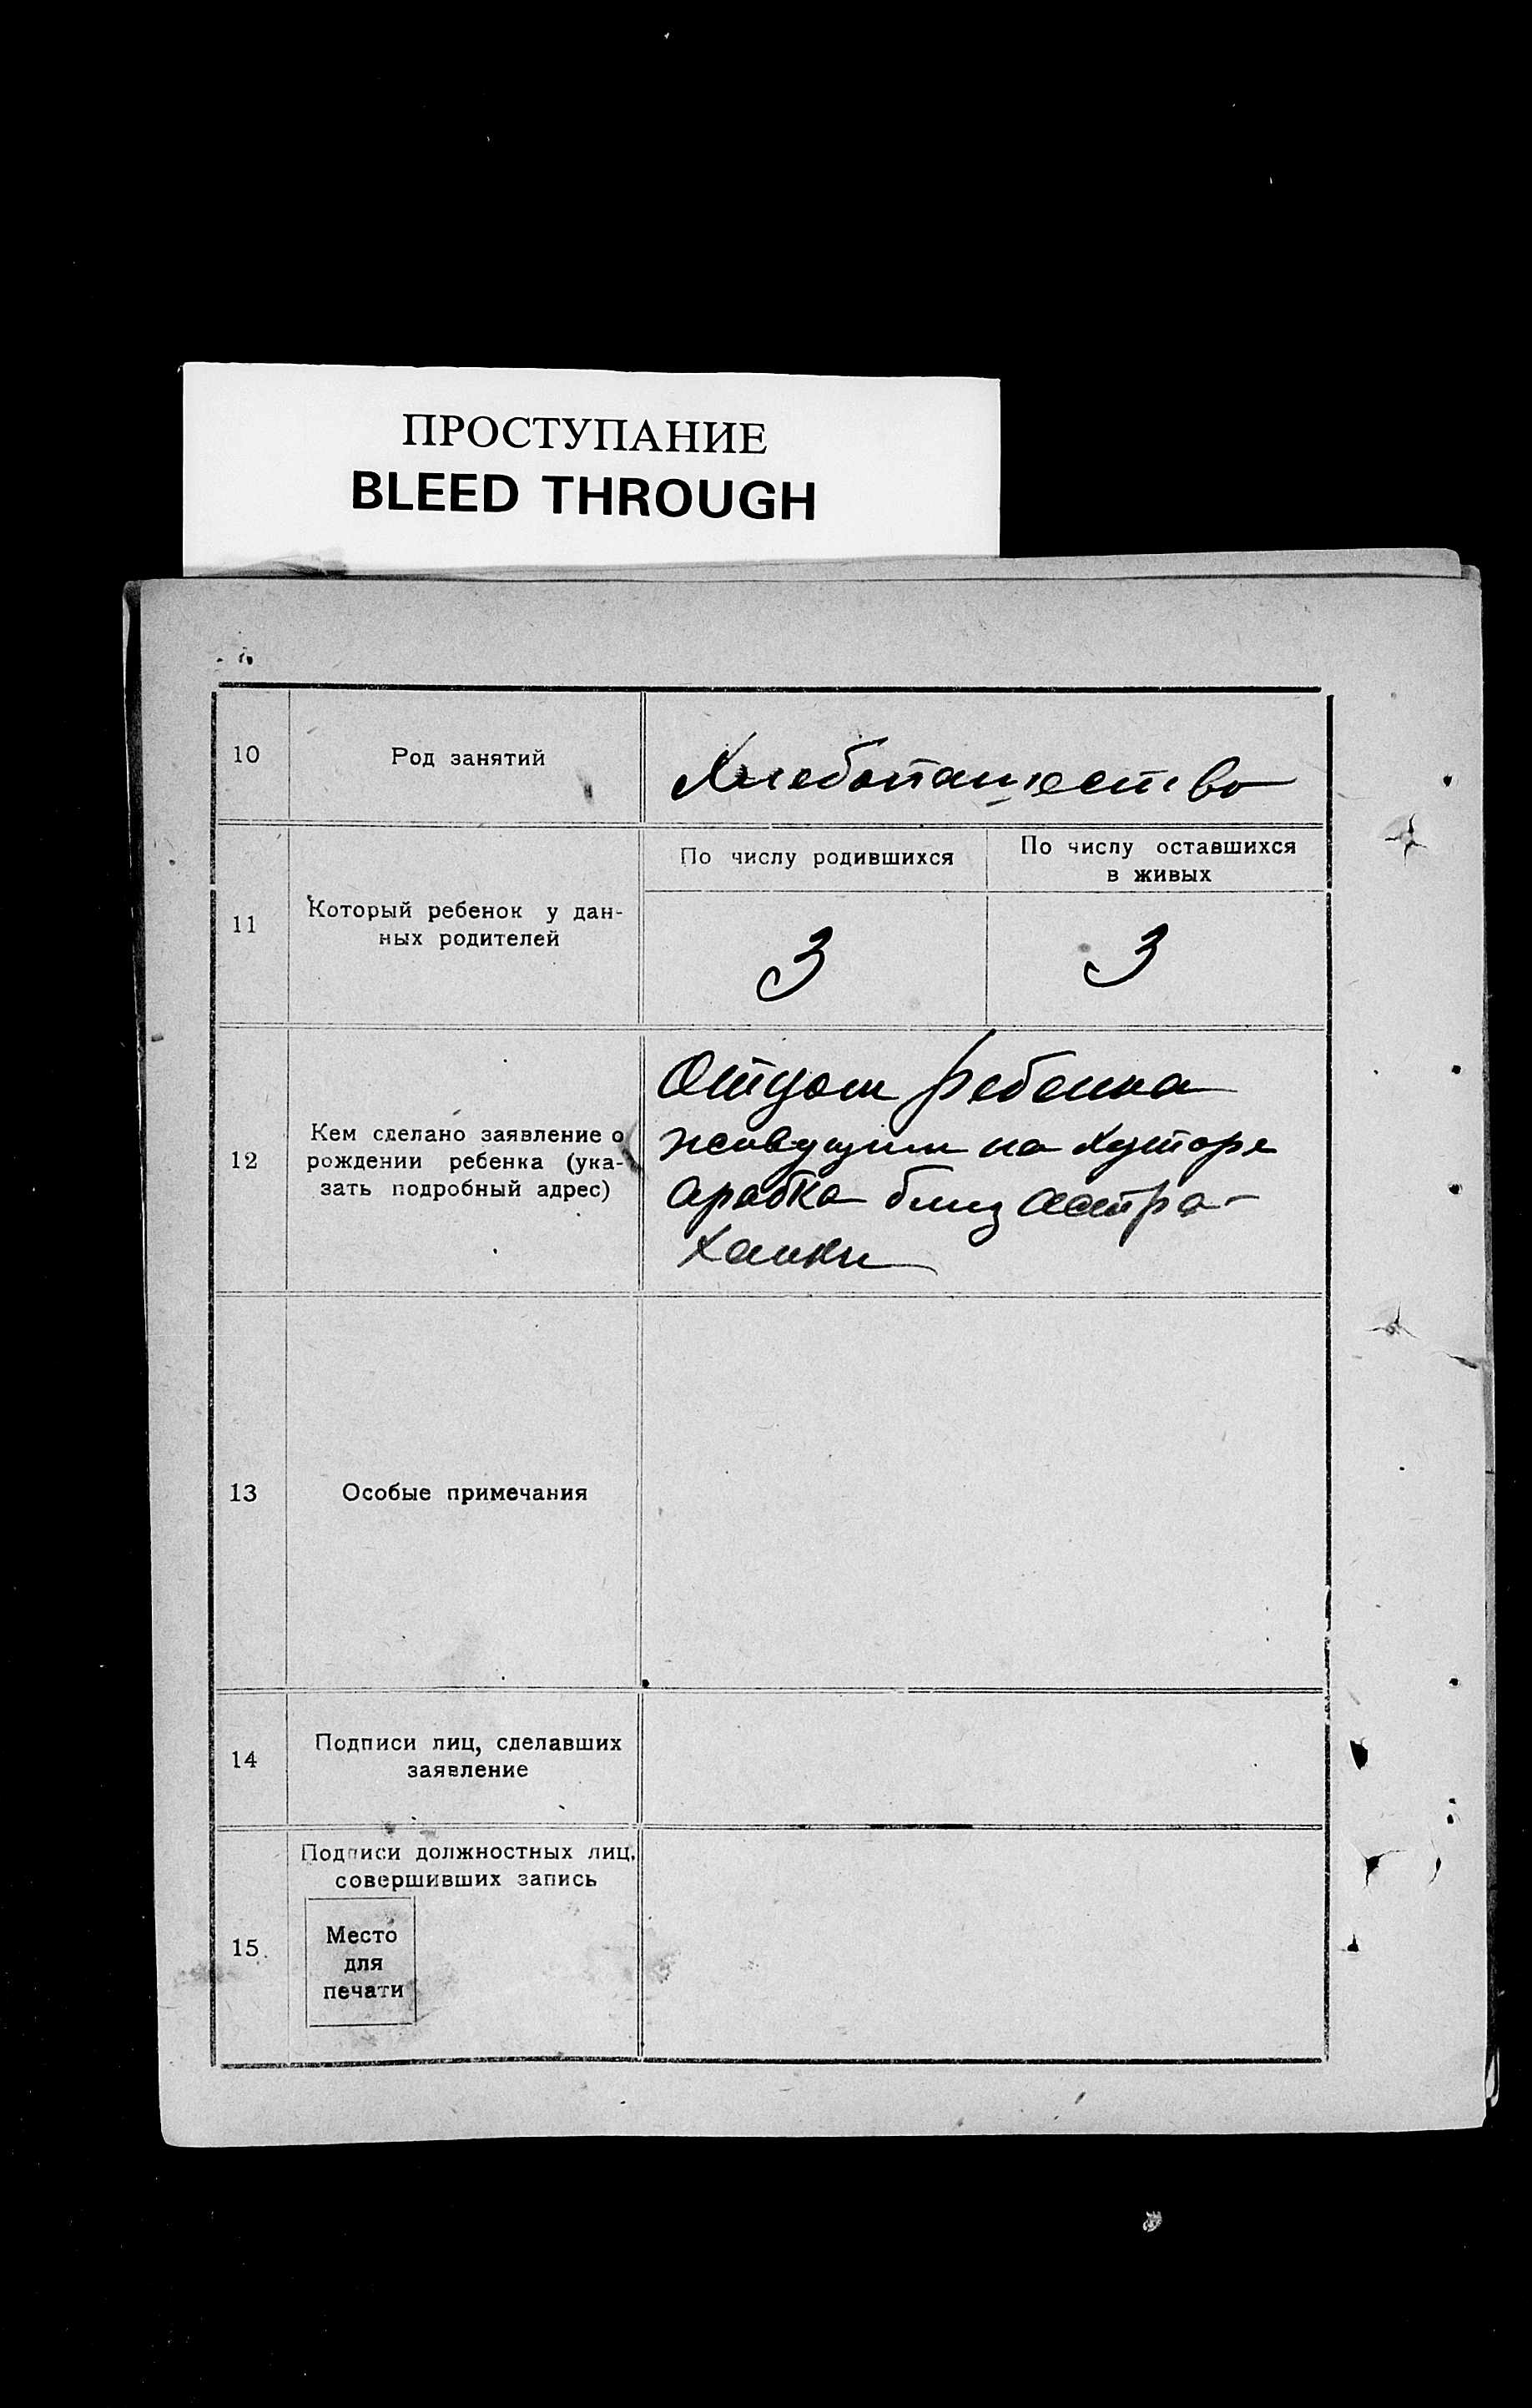 ПРОСТУПАНИЕ
BLEED THROUGH
10
Род занятий
Хлебопашество
11
Который ребенок у дан-
ных родителей
По числу родившихся
По числу оставшихся
в живых
3
3
12
Кем сделано заявление о
рождении ребенка (ука-
зать подробный адрес)
Отцом ребенка
живущим на хуторе
близ Астра-
ханки
13
Особые примечания
14
Подписи лиц, сделавших
заявление
15.
Подписи должностных лиц,
совершивших запись
Место
для
печати